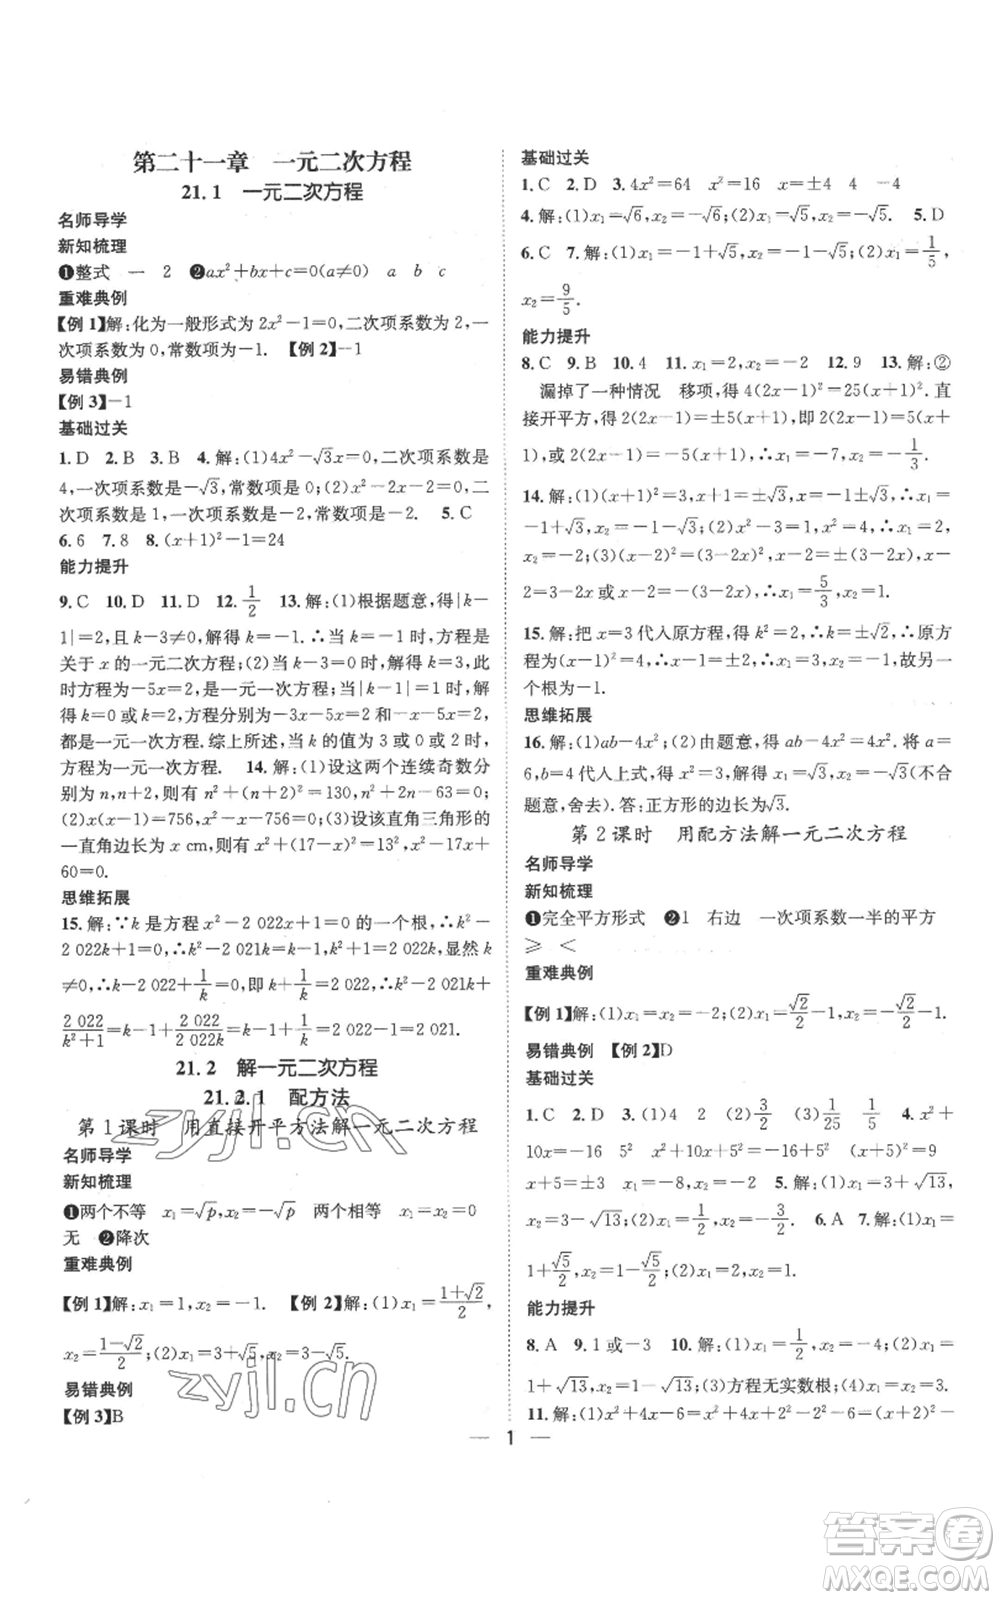 第二十一章　一元二次方程
21.1　一元二次方程
名师导学
新知梳理
❶整式　一　2　❷ax²+bx+c=0(a≠0)　a　b　c
重难典例
【例1】解:化为一般形式为2x²-1=0,二次项系数为2,一
次项系数为0,常数项为-1.　【例2】-1
易错典例
【例3】-1
基础过关
1.D　2.B　3.B　4.解:(1)4x²-√3x=0,二次项系数是
4,一次项系数是-√3,常数项是0;(2)x²-2x-2=0,二
次项系数是1,一次项系数是-2,常数项是-2.　5.C
6.6　7.8　8.(x+1)²-1=24
能力提升
9.C　10.D　11.D　12.1/2　13.解:(1)根据题意,得|k-
1|=2,且k-3≠0,解得k=-1.∴当k=-1时,方程是
关于x的一元二次方程;(2)当k-3=0时,解得k=3,此
时方程为-5x=2,是一元一次方程;当|k-1|=1时,解
得k=0或k=2,方程分别为-3x-5x=2和-x-5x=2,
都是一元一次方程.综上所述,当k的值为3或0或2时,
方程为一元一次方程.　14.解:(1)设这两个连续奇数分
别为n,n+2,则有n²+(n+2)²=130,n²+2n-63=0;
(2)x(x-1)=756,x²-x-756=0;(3)设该直角三角形的
一直角边长为x cm,则x²+(17-x)²=13²,x²-17x+
60=0.
思维拓展
15.解:∵k是方程x²-2 022x+1=0的一个根,∴k²-
2 022k+1=0,∴k²+1=2 022k,k²-2 021k=k-1.显然k
≠0,∴k-2 022+1/k=0,∴k+1/k=2 022,∴k²-2 021k+
2 022/(k²+1)=k-1+2 022/(2 022k)=k-1+1/k=2 022-1=2 021.
21.2　解一元二次方程
21.2.1　配方法
第1课时　用直接开平方法解一元二次方程
名师导学
新知梳理
❶两个不等　x₁=√p,x₂=-√p　两个相等　x₁=x₂=0
无　❷降次
重难典例
【例1】解:x₁=1,x₂=-1.　【例2】解:(1)x₁=(1+√2)/2,
x₂=(1-√2)/2;(2)x₁=3+√5,x₂=3-√5.
易错典例
【例3】B
基础过关
1.C　2.D　3.4x²=64　x²=16　x=±4　4　-4
4.解:(1)x₁=√6,x₂=-√6;(2)x₁=√5,x₂=-√5.　5.D
6.C　7.解:(1)x₁=-1+√5,x₂=-1-√5;(2)x₁=1/5,
x₂=9/5.
能力提升
8.C　9.B　10.4　11.x₁=2,x₂=-2　12.9　13.解:②
漏掉了一种情况　移项,得4(2x-1)²=25(x+1)².直
接开平方,得2(2x-1)=±5(x+1),即2(2x-1)=5(x+
1),或2(2x-1)=-5(x+1),∴x₁=-7,x₂=-1/3.
14.解:(1)(x+1)²=3,x+1=±√3,x=-1±√3,∴x₁=
-1+√3,x₂=-1-√3;(2)(x-2+2)²=4,x²=4,∴x₁=2,
x₂=-2;(3)(x-2)²=(3-2x)²,x-2=±(3-2x),x-
2=3-2x或x-2=-(3-2x),∴x₁=5/3,x₂=1.
15.解:把x=3代入原方程,得k²=2,k=±√2,∴原方
程为2x²-4x-6=0,解得x₁=3,x₂=-1,故方程的另一
个根为-1.
思维拓展
16.解:(1)ab-4x²;(2)由题意,得ab-4x²=4x².将a=
6,b=4代入上式,得x²=3,解得x₁=√3,x₂=-√3(不合
题意,舍去).答:正方形的边长为√3.
第2课时　用配方法解一元二次方程
名师导学
新知梳理
❶完全平方形式　❷1　右边　一次项系数一半的平方
≥　<
重难典例
【例1】解:(1)x₁=4,x₂=-2;(2)x₁=√2/2-1,x₂=-√2/2-1.
易错典例　【例2】D
基础过关
1.C　2.C　3.(1)4　2　(2)3/2　3/2　(3)1/25　1/5　4.x²+
10x=-16　5²　x²+10x+5²=-16+5²　(x+5)²=9
x+5=±3　x₁=-8,x₂=-2　5.解:(1)x₁=3+√13,
x₂=3-√13;(2)x₁=1/2,x₂=-3/2.　6.A　7.解:(1)x₁=
1+√5/2,x₂=1-√5/2;(2)x₁=2,x₂=-1.
能力提升
8.A　9.1或-3　10.解:(1)x₁=1/2,x₂=-4;(2)x₁=-
1+√13,x₂=-1-√13;(3)方程无实数根;(4)x₁=x₂=3.
11.解:(1)x²+4x-2=x²+4x+2²-2²-2=(x+2)²-
1
答案圈
MXQE.COM
zyjl.cn